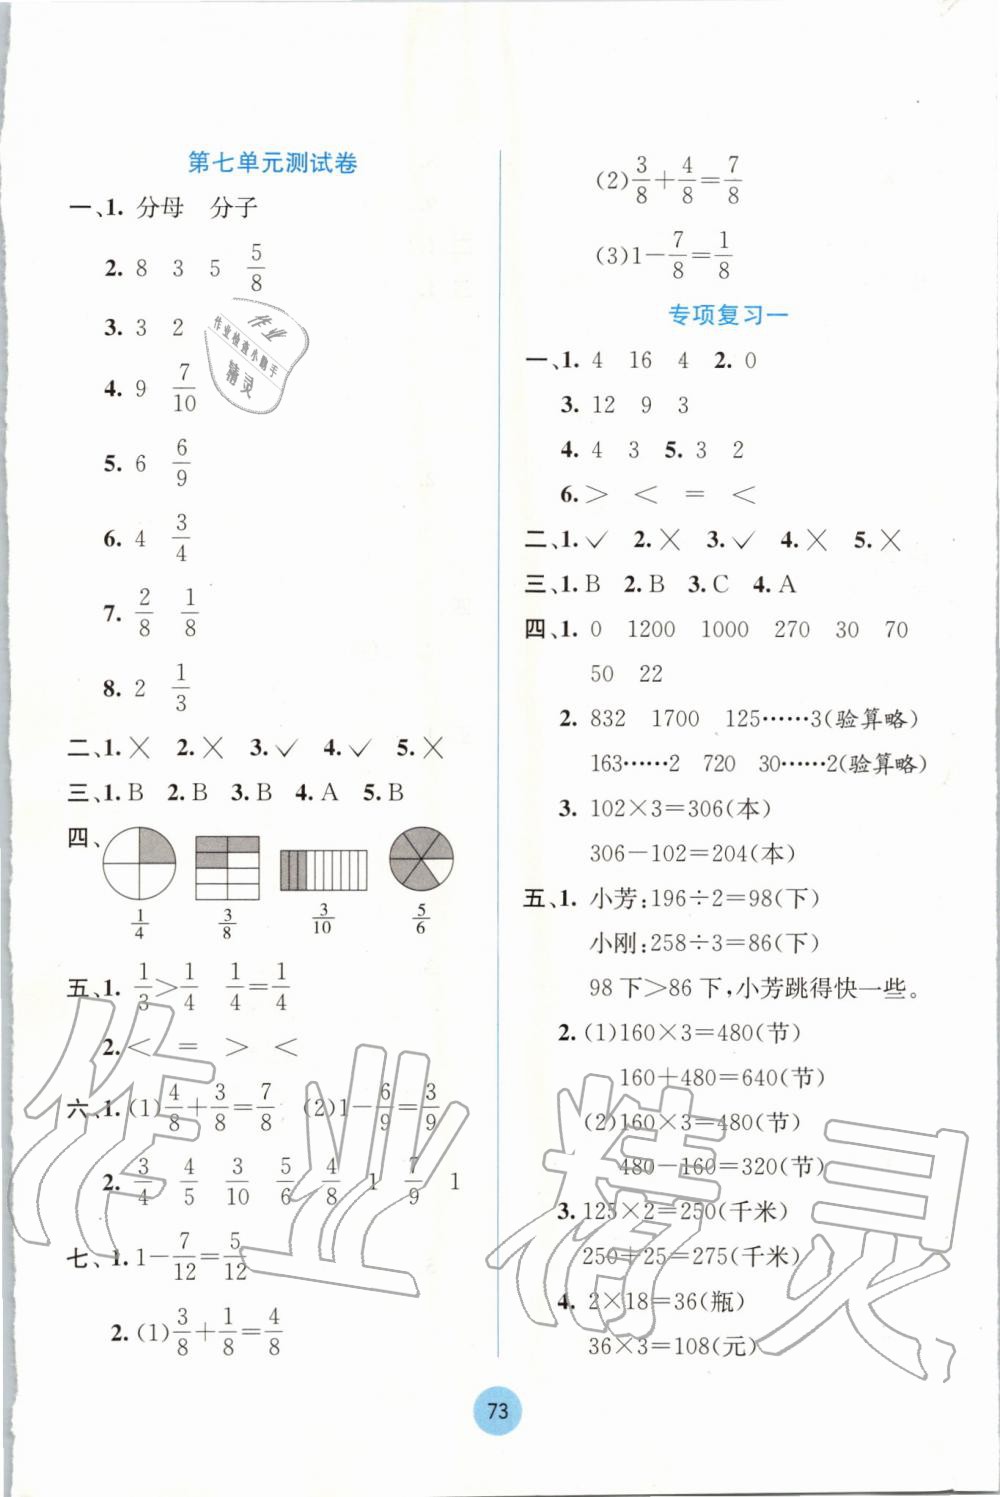 第七单元测试卷
一、1. 分母 分子
2. 8 3 5 5/8
3. 3 2
4. 9 7/10
5. 6 6/9
6. 4 3/4
7. 2/8 1/8
8. 2 1/3
二、1.╳ 2.╳ 3.✓ 4.✓ 5.╳
三、1.B 2.B 3.B 4.A 5.B
四、
1/4 3/8 3/10 5/6
五、1. 1/3>1/4 1/4=1/4
2.< = > <
六、1.(1)4/8+3/8=7/8 (2)1-6/9=3/9
2. 3/4 4/5 3/10 5/6 4/8 1 7/9 1
七、1. 1-7/12=5/12
2.(1)3/8+1/8=4/8
(2)3/8+4/8=7/8
(3)1-7/8=1/8
专项复习一
一、1. 4 16 4 2. 0
3. 12 9 3
4. 4 3 5. 3 2
6.> < = <
二、1.✓ 2.╳ 3.✓ 4.╳ 5.╳
三、1.B 2.B 3.C 4.A
四、1. 0 1200 1000 270 30 70
50 22
2. 832 1700 125……3(验算略)
163……2 720 30……2(验算略)
3. 102×3=306(本)
306-102=204(本)
五、1. 小芳:196÷2=98(下)
小刚:258÷3=86(下)
98下>86下,小芳跳得快一些。
2.(1)160×3=480(节)
160+480=640(节)
(2)160×3=480(节)
480-160=320(节)
3. 125×2=250(千米)
250+25=275(千米)
4. 2×18=36(瓶)
36×3=108(元)
73
作业
作业检查小助手
精灵
作业精灵